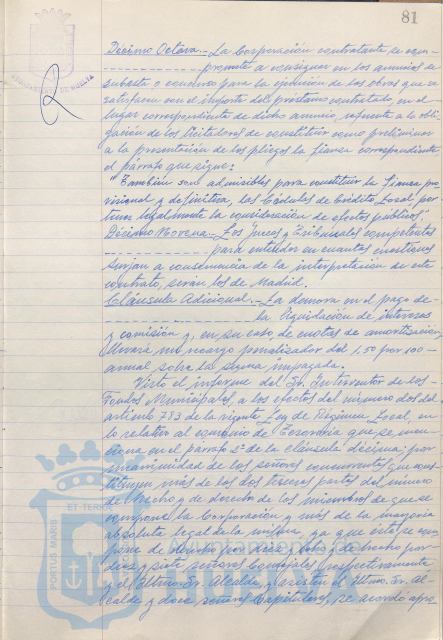 81
AYUNTAMIENTO DE HUELVA
Décimo Octava.- La Corporación contratante se com-
promete a consignar en los anuncios de
subasta o concurso para la ejecución de las obras que se
satisfacen con el importe del préstamo contratado, en el
lugar correspondiente de dicho anuncio, referente a la obli-
gación de los licitadores de constituir como preliminar
a la presentación de los pliegos la fianza correspondiente
el párrafo que sigue:
"También serán admisibles para constituir la fianza pro
visional y definitiva, las Cédulas de Crédito Local, por
tener legalmente la consideración de efectos públicos".
Décimo Novena.- Los Jueces y Tribunales competentes
para entender en cuantas cuestiones
surjan a consecuencia de la interpretación de este
contrato, serán los de Madrid.
Cláusula Adicional.- La demora en el pago de
la liquidación de intereses
y comisión y, en su caso, de cuotas de amortización,
llevará un recargo penalizador del 1,50 por 100
anual sobre la suma impagada.
Visto el informe del Sr. Interventor de los
Fondos Municipales, a los efectos del número dos del
artículo 783 de la vigente Ley de Régimen Local, en
lo relativo al convenio de Tesorería que se men-
ciona en el párrafo 2º de la cláusula décima; por
unanimidad de los señores concurrentes, que cons-
tituyen más de las dos terceras partes del número
de hecho y de derecho de los miembros de que se
compone la Corporación y más de la mayoría
absoluta legal de la misma, ya que ésta se com
pone de derecho por diez y ocho y de hecho por
diez y siete señores Concejales respectivamente
y el Iltmo. Sr. Alcalde, y asisten el Iltmo. Sr. Al-
calde y doce señores Capitulares, se acordó apro
PORTUS MARIS
ET TERRÆ